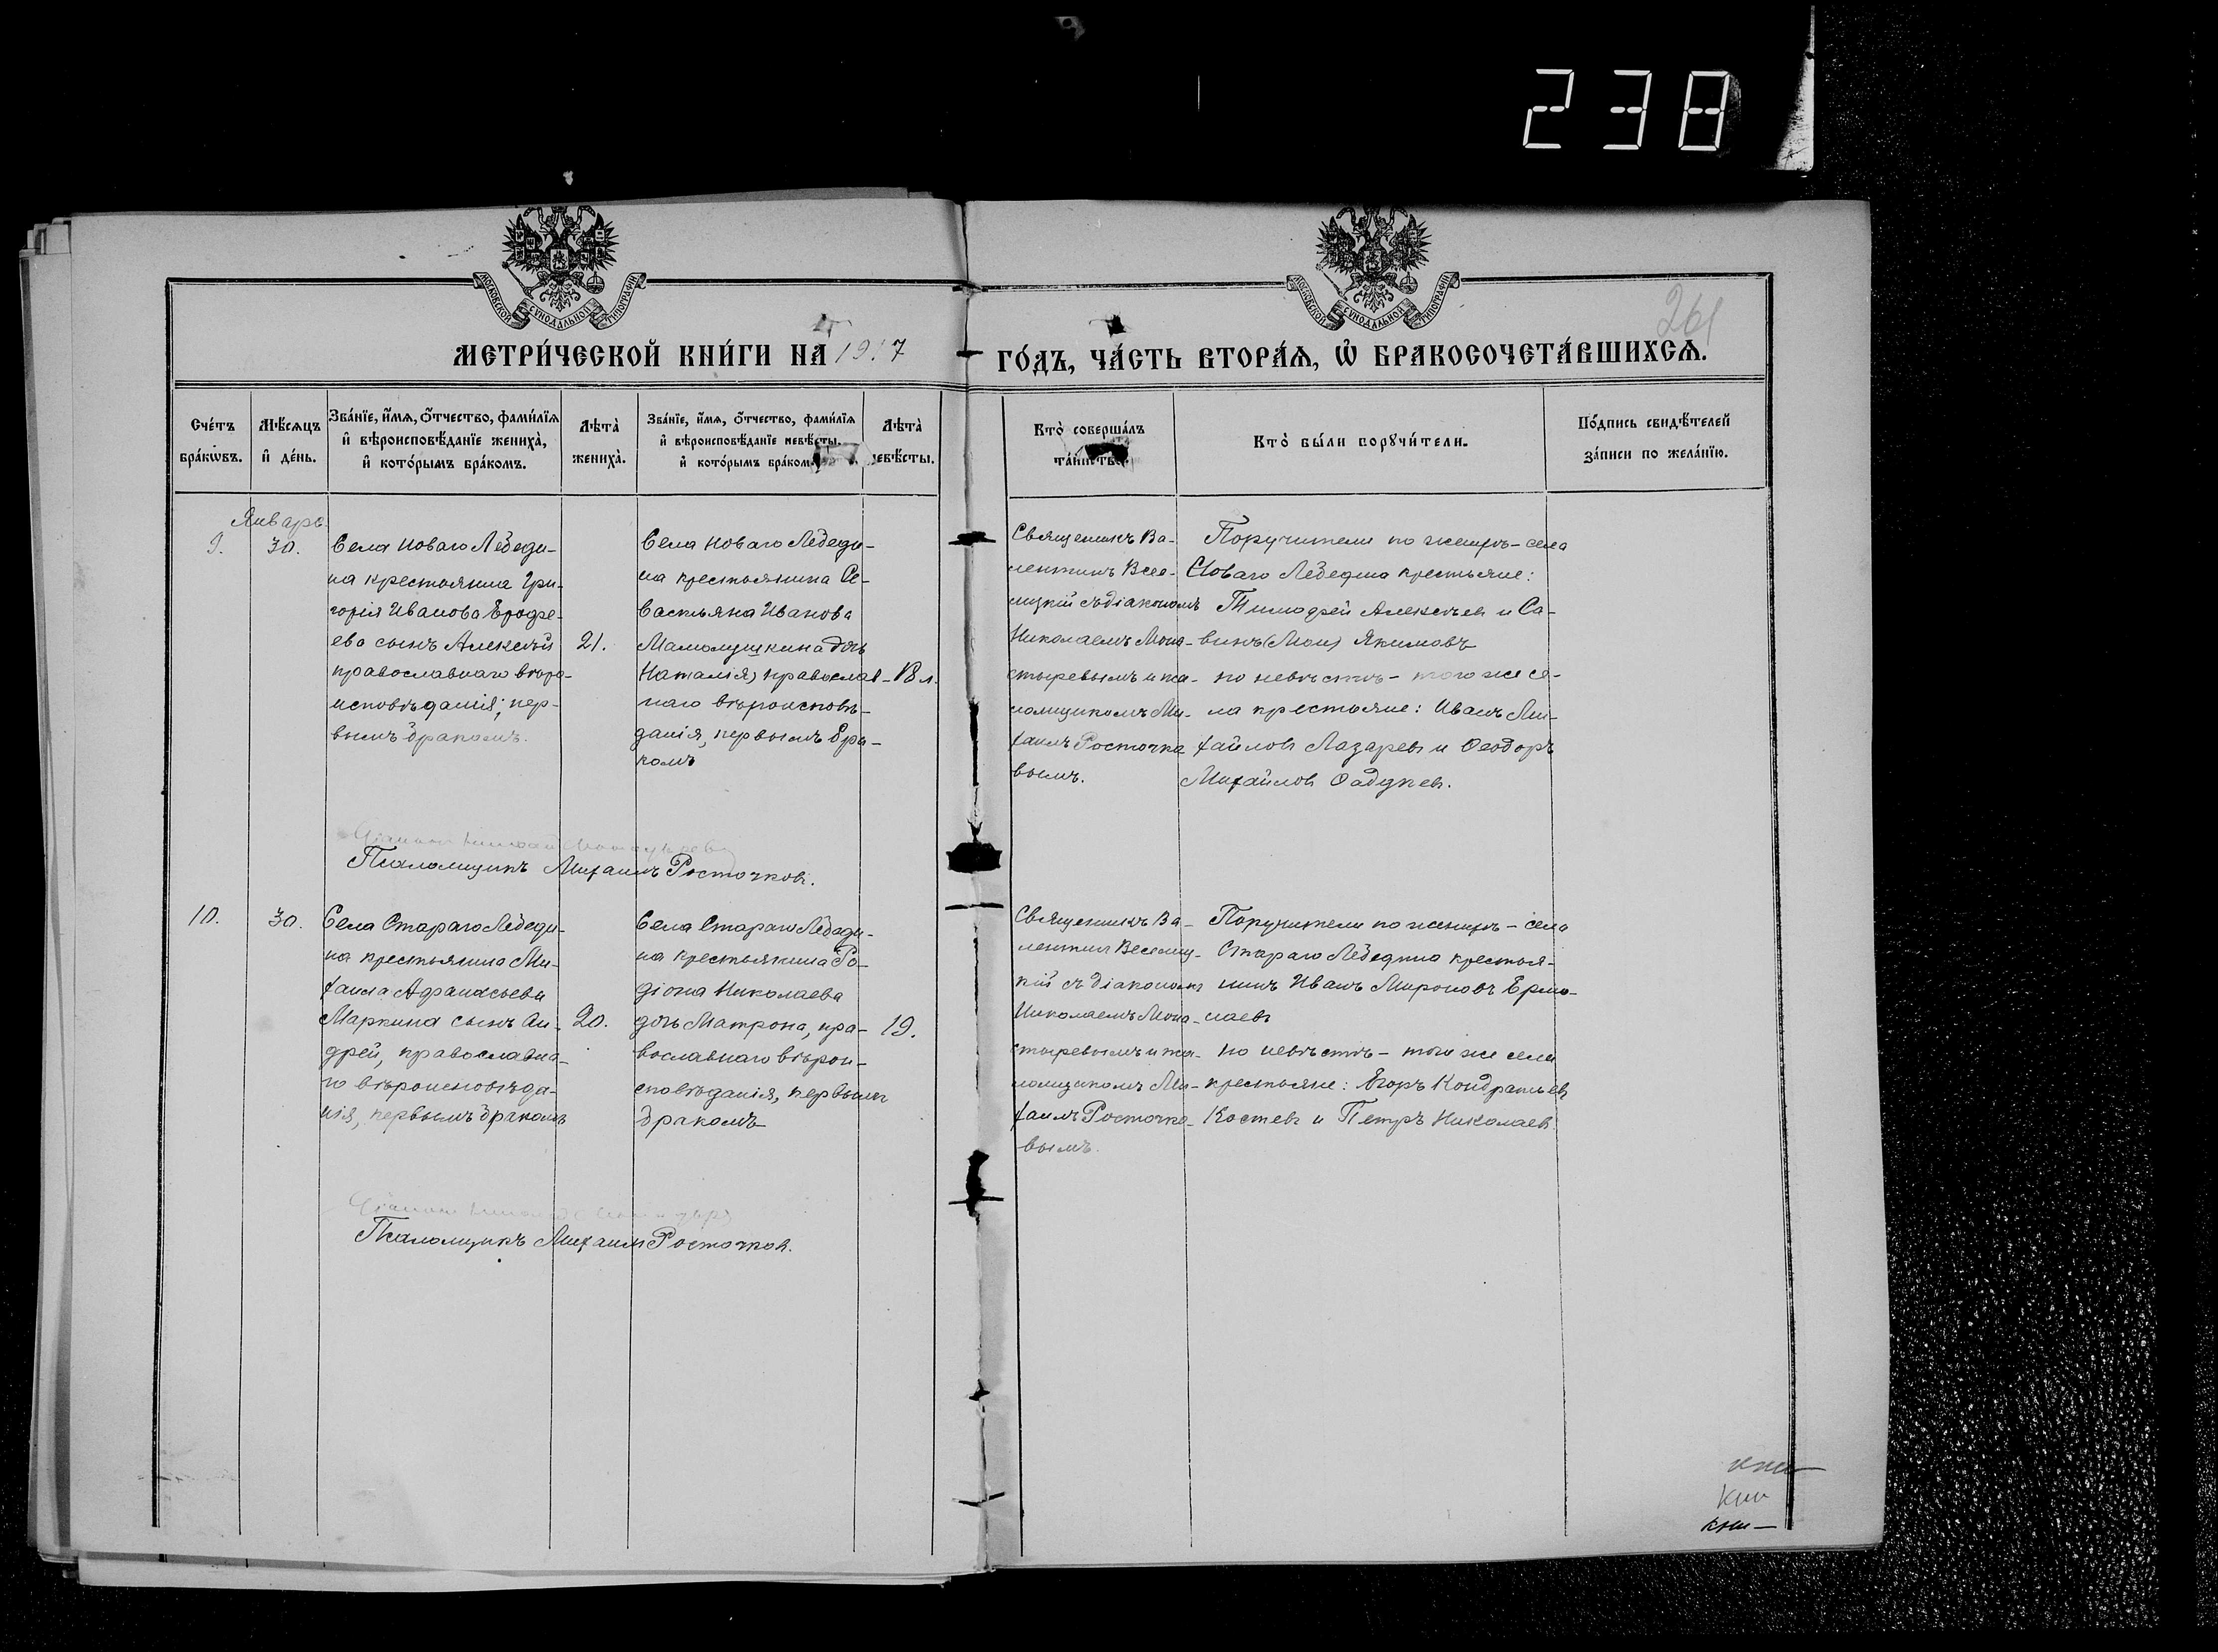 238
МОСКОВСКОЙ СѴНОДАЛЬНОЙ ТИПОГРАФІИ
МОСКОВСКОЙ СѴНОДАЛЬНОЙ ТИПОГРАФІИ
261
МЕТРИ́ЧЕСКОЙ КНИ́ГИ НА 1917
ГО́ДЪ, ЧА́СТЬ ВТОРА́Ѧ, Ѡ҆ БРАКОСОЧЕТА́ВШИХСѦ.
Сче́тъ
бра́кѡвъ.
Мѣ́сѧцъ
и҆ де́нь.
Зва́нїе, и҆́мѧ, ѻ҆́тчество, фами́лїѧ
и҆ вѣроисповѣ́данїе жениха̀,
и҆ кото́рымъ бра́комъ.
Лѣта̀
жениха̀.
Зва́нїе, и҆́мѧ, ѻ҆́тчество, фами́лїѧ
и҆ вѣроисповѣ́данїе невѣ́сты,
и҆ кото́рымъ бра́комъ
Лѣта̀
невѣ́сты.
Кто̀ соверша́лъ
та́инство.
Кто̀ бы́ли порꙋчи́тели.
По́дпись свидѣ́телей
за́писи по жела́нїю.
Январь
9.
30.
Села Новаго Лебеди-
на крестьянина Гри-
горія Иванова Ерофе-
ева сынъ Алексѣй
православнаго вѣро-
исповѣданія, пер-
вымъ бракомъ.
21.
Села Новаго Лебеди-
на крестьянина Се-
вастьяна Иванова
дочь
Наталія, православ-
наго вѣроисповѣ-
данія, первымъ бра-
комъ
18 л.
Священникъ Ва-
лентинъ Весе-
лицкій съ діакономъ
Николаемъ Мона-
стыревымъ и пса-
ломщикомъ Ми-
хаилъ Росточко
вымъ.
Поручители по женихѣ – села
Новаго Лебедина крестьяне:
Тимофей Алексѣевъ и Са-
винъ Якимовъ
по невѣстѣ – того же се-
ла крестьяне: Иванъ Ми-
хайловъ Лазаревъ и Ѳеодоръ
Михайловъ Ѳадѣевъ.
Діаконъ Николай Монастыревъ
Псаломщикъ Михаилъ Росточковъ.
10.
30.
Села Стараго Лебеди-
на крестьянина Ми-
хаила Афанасьева
Маркина сынъ Ан-
дрей, православна-
го вѣроисповѣда-
нія, первымъ бракомъ
20.
Села Стараго Лебеди-
на крестьянина Ро-
діона Николаева
дочь Матрона, пра-
вославнаго вѣрои-
сповѣданія, первымъ
бракомъ
19.
Священникъ Ва-
лентинъ Веселиц-
кій съ діакономъ
Николаемъ Мона-
стыревымъ и пса-
ломщикомъ Ми-
хаилъ Росточко-
вымъ.
Поручители по женихѣ – села
Стараго Лебедина крестья-
нинъ Иванъ Мироновъ Ермо-
лаевъ
по невѣстѣ – того же села
крестьяне: Егоръ Кондратьевъ
Костевъ и Петръ Николаевъ
Діаконъ Николай
Псаломщикъ Михаилъ Росточковъ.